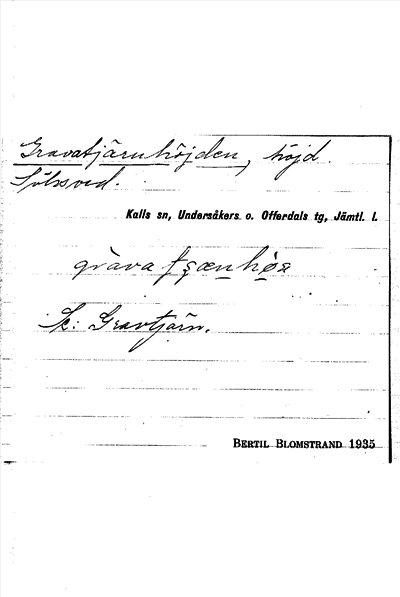 Gravatjärnhöjden, höjd.
Sölvsved.
Kalls sn, Undersåkers o. Offerdals tg, Jämtl. l.
grava
K: Gravtjärn.
BERTIL BLOMSTRAND 1935